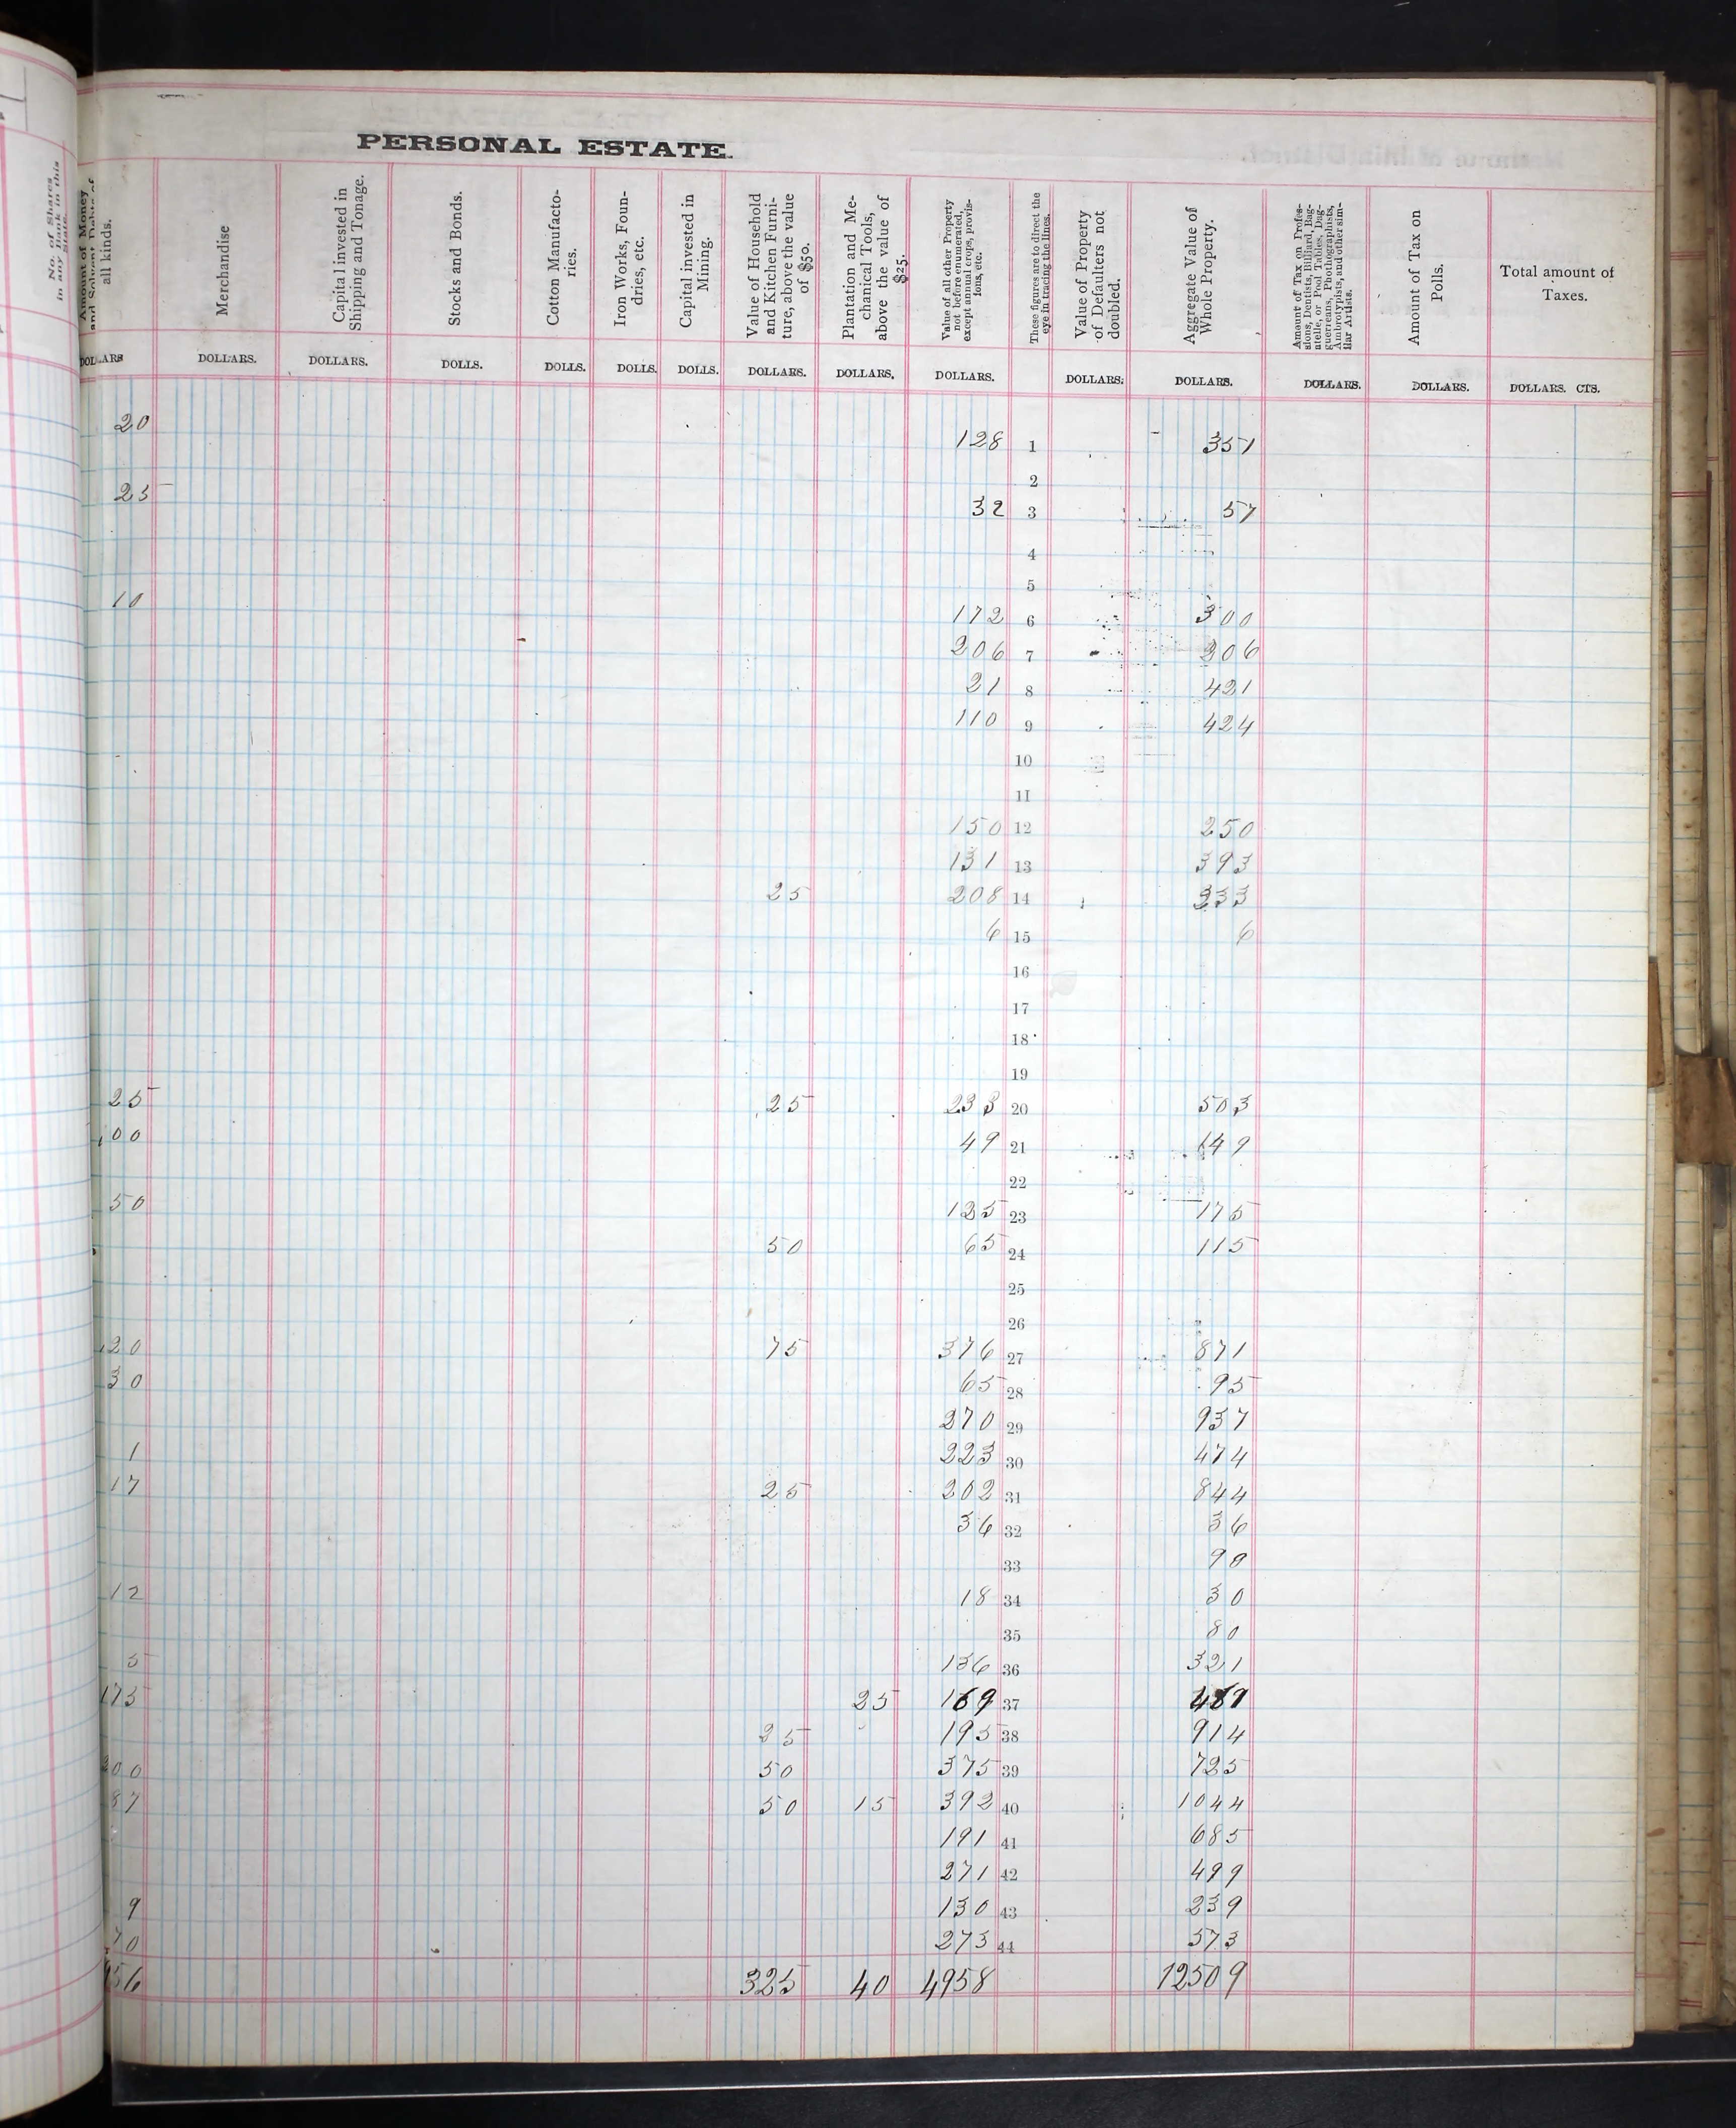 PERSONAL ESTATE.
No. of Shares in any Bank in this State.
Amount of Money and Solvent Debts of all kinds.
Merchandise
Capital invested in Shipping and Tonage.
Stocks and Bonds.
Cotton Manufactories.
Iron Works, Foundries, etc.
Capital invested in Mining.
Value of Household and Kitchen Furniture, above the value of $50.
Plantation and Mechanical Tools, above the value of $25.
Value of all other Property not before enumerated, except annual crops, provisions, etc.
These figures are to direct the eye in tracing the lines.
Value of Property of Defaulters not doubled.
Aggregate Value of Whole Property.
Amount of Tax on Professions, Dentists, Billiard, Bagatelle, or Pool Tables, Daguerreans, Photographists, Ambrotypists, and other similar Artists.
Amount of Tax on Polls.
Total amount of Taxes.
DOLLARS DOLLARS. DOLLARS. DOLLS. DOLLS. DOLLS. DOLLS. DOLLARS. DOLLARS. DOLLARS. DOLLARS. DOLLARS. DOLLARS. DOLLARS. DOLLARS. CTS.
20 128 1 351
2
25 32 3 57
4
5
10 172 6 300
206 7 206
21 8 421
110 9 424
10
11
150 12 250
131 13 393
25 208 14 233
6 15 6
16
17
18
19
25 25 233 20 503
00 49 21 149
22
50 125 23 175
50 65 24 115
25
26
20 75 376 27 871
30 65 28 95
270 29 937
1 223 30 474
17 25 202 31 844
36 32 36
33 90
12 18 34 30
35 80
5 136 36 321
175 25 169 37
25 195 38 914
200 50 375 39 725
87 50 15 392 40 1044
191 41 685
271 42 499
9 130 43 239
70 273 44 573
56 325 40 4958 12509